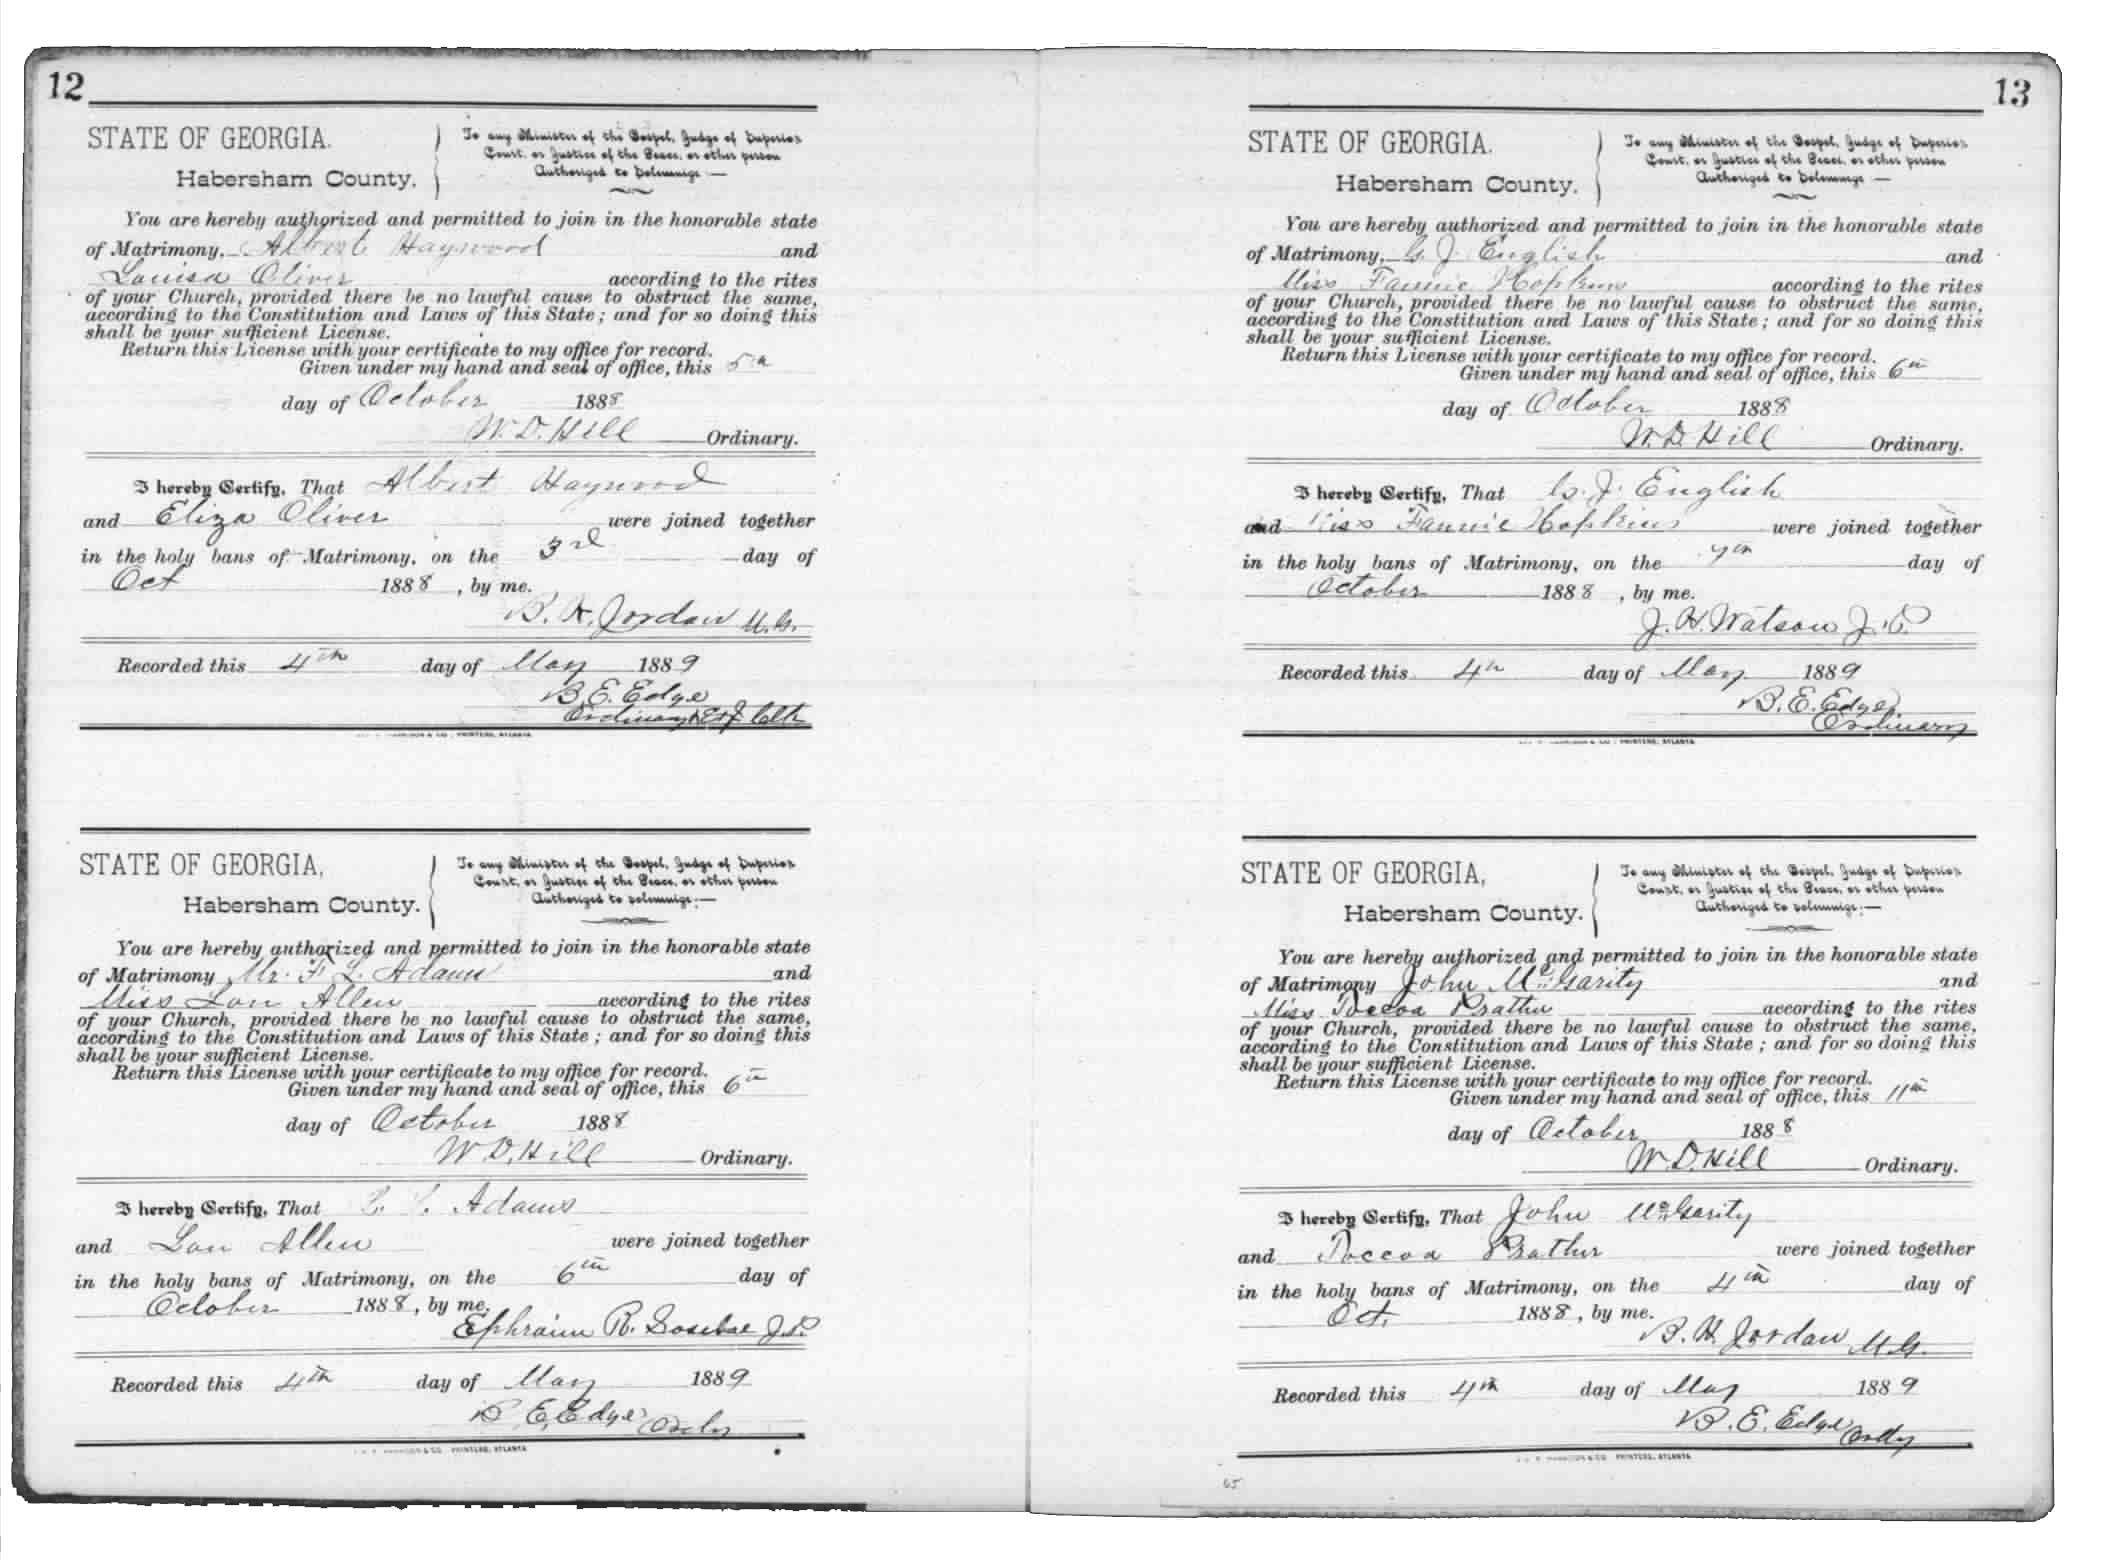 12
STATE OF GEORGIA.
Habersham County.
To any Minister of the Gospel, Judge of Superior
Court, or Justice of the Peace, or other person
Authorized to Solemnize:—
You are hereby authorized and permitted to join in the honorable state
of Matrimony, Albert Haywood and
Louisa Oliver according to the rites
of your Church, provided there be no lawful cause to obstruct the same,
according to the Constitution and Laws of this State; and for so doing this
shall be your sufficient License.
Return this License with your certificate to my office for record.
Given under my hand and seal of office, this 5th
day of October 1888
W. D. Hill Ordinary.
I hereby Certify, That Albert Haywood
and Eliza Oliver were joined together
in the holy bans of Matrimony, on the 3rd day of
Oct 1888, by me.
B. H. Jordan M.G.
Recorded this 4th day of May 1889
B. E. Edge
Ordinary & Ex of Clk
PRINTERS, ATLANTA
STATE OF GEORGIA,
Habersham County.
To any Minister of the Gospel, Judge of Superior
Court, or Justice of the Peace, or other person
Authorized to solemnize:—
You are hereby authorized and permitted to join in the honorable state
of Matrimony Mr. F. L. Adams and
Miss Lou Allen according to the rites
of your Church, provided there be no lawful cause to obstruct the same,
according to the Constitution and Laws of this State; and for so doing this
shall be your sufficient License.
Return this License with your certificate to my office for record.
Given under my hand and seal of office, this 6th
day of October 1888
W. D. Hill Ordinary.
I hereby Certify, That Adams
and Lou Allen were joined together
in the holy bans of Matrimony, on the 6th day of
October 1888, by me.
Ephraim R. Sosebee J.P.
Recorded this 4th day of May 1889
B. E. Edge Ordy
PRINTERS, ATLANTA
13
STATE OF GEORGIA.
Habersham County.
To any Minister of the Gospel, Judge of Superior
Court, or Justice of the Peace, or other person
Authorized to Solemnize:—
You are hereby authorized and permitted to join in the honorable state
of Matrimony, G. J. English and
Miss Fannie Hopkins according to the rites
of your Church, provided there be no lawful cause to obstruct the same,
according to the Constitution and Laws of this State; and for so doing this
shall be your sufficient License.
Return this License with your certificate to my office for record.
Given under my hand and seal of office, this 6th
day of October 1888
W. D. Hill Ordinary.
I hereby Certify, That G. J. English
and Miss Fannie Hopkins were joined together
in the holy bans of Matrimony, on the 7th day of
October 1888, by me.
J. H. Watson J.P.
Recorded this 4th day of May 1889
B. E. Edge
Ordinary
PRINTERS, ATLANTA
STATE OF GEORGIA,
Habersham County.
To any Minister of the Gospel, Judge of Superior
Court, or Justice of the Peace, or other person
Authorized to solemnize:—
You are hereby authorized and permitted to join in the honorable state
of Matrimony John McGarity and
Miss Toccoa Prather according to the rites
of your Church, provided there be no lawful cause to obstruct the same,
according to the Constitution and Laws of this State; and for so doing this
shall be your sufficient License.
Return this License with your certificate to my office for record.
Given under my hand and seal of office, this 11th
day of October 1888
W. D. Hill Ordinary.
I hereby Certify, That John McGarity
and Toccoa Prather were joined together
in the holy bans of Matrimony, on the 4th day of
Oct. 1888, by me.
B. H. Jordan M.G.
Recorded this 4th day of May 1889
B. E. Edge Ordy
PRINTERS, ATLANTA